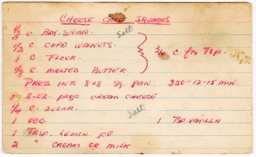 CHEESE CAKE SQUARES
1/3 C BR. SUGAR Salt
1/2 C CHPD WALNUTS
1 C FLOUR 3/4 C. for Top.
1/3 C MELTED BUTTER
PRESS INTO 8x8 SQ. PAN. 350-12-15 MIN.
1 8-OZ. PKGE CREAM CHEESE
1/4 C SUGAR Salt
1 EGG 1 Tsp. vanilla
1 TBSP. LEMON JCE
2 " CREAM OR MILK